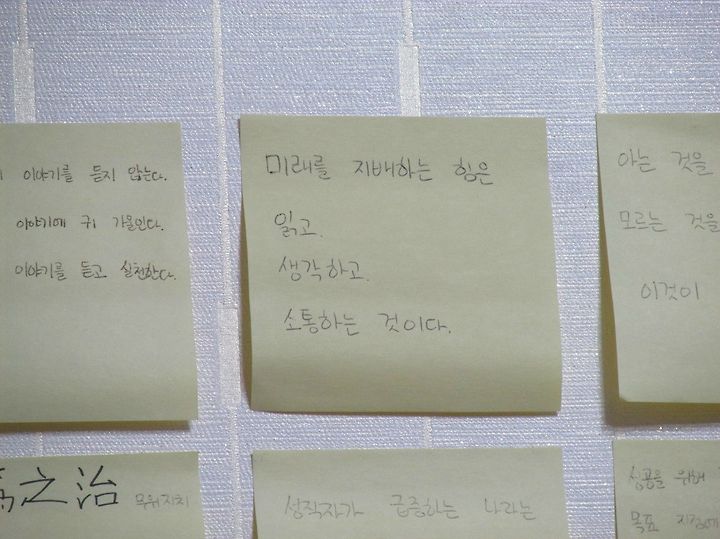 이야기를 듣지 않는다.
이야기에 귀 기울인다.
이야기를 듣고 실천한다.
미래를 지배하는 힘은
읽고.
생각하고.
소통하는 것이다.
아는 것을
모르는 것을
이것이
之治 무위지치
성직자가 급증하는 나라는
성공을 위해
목표